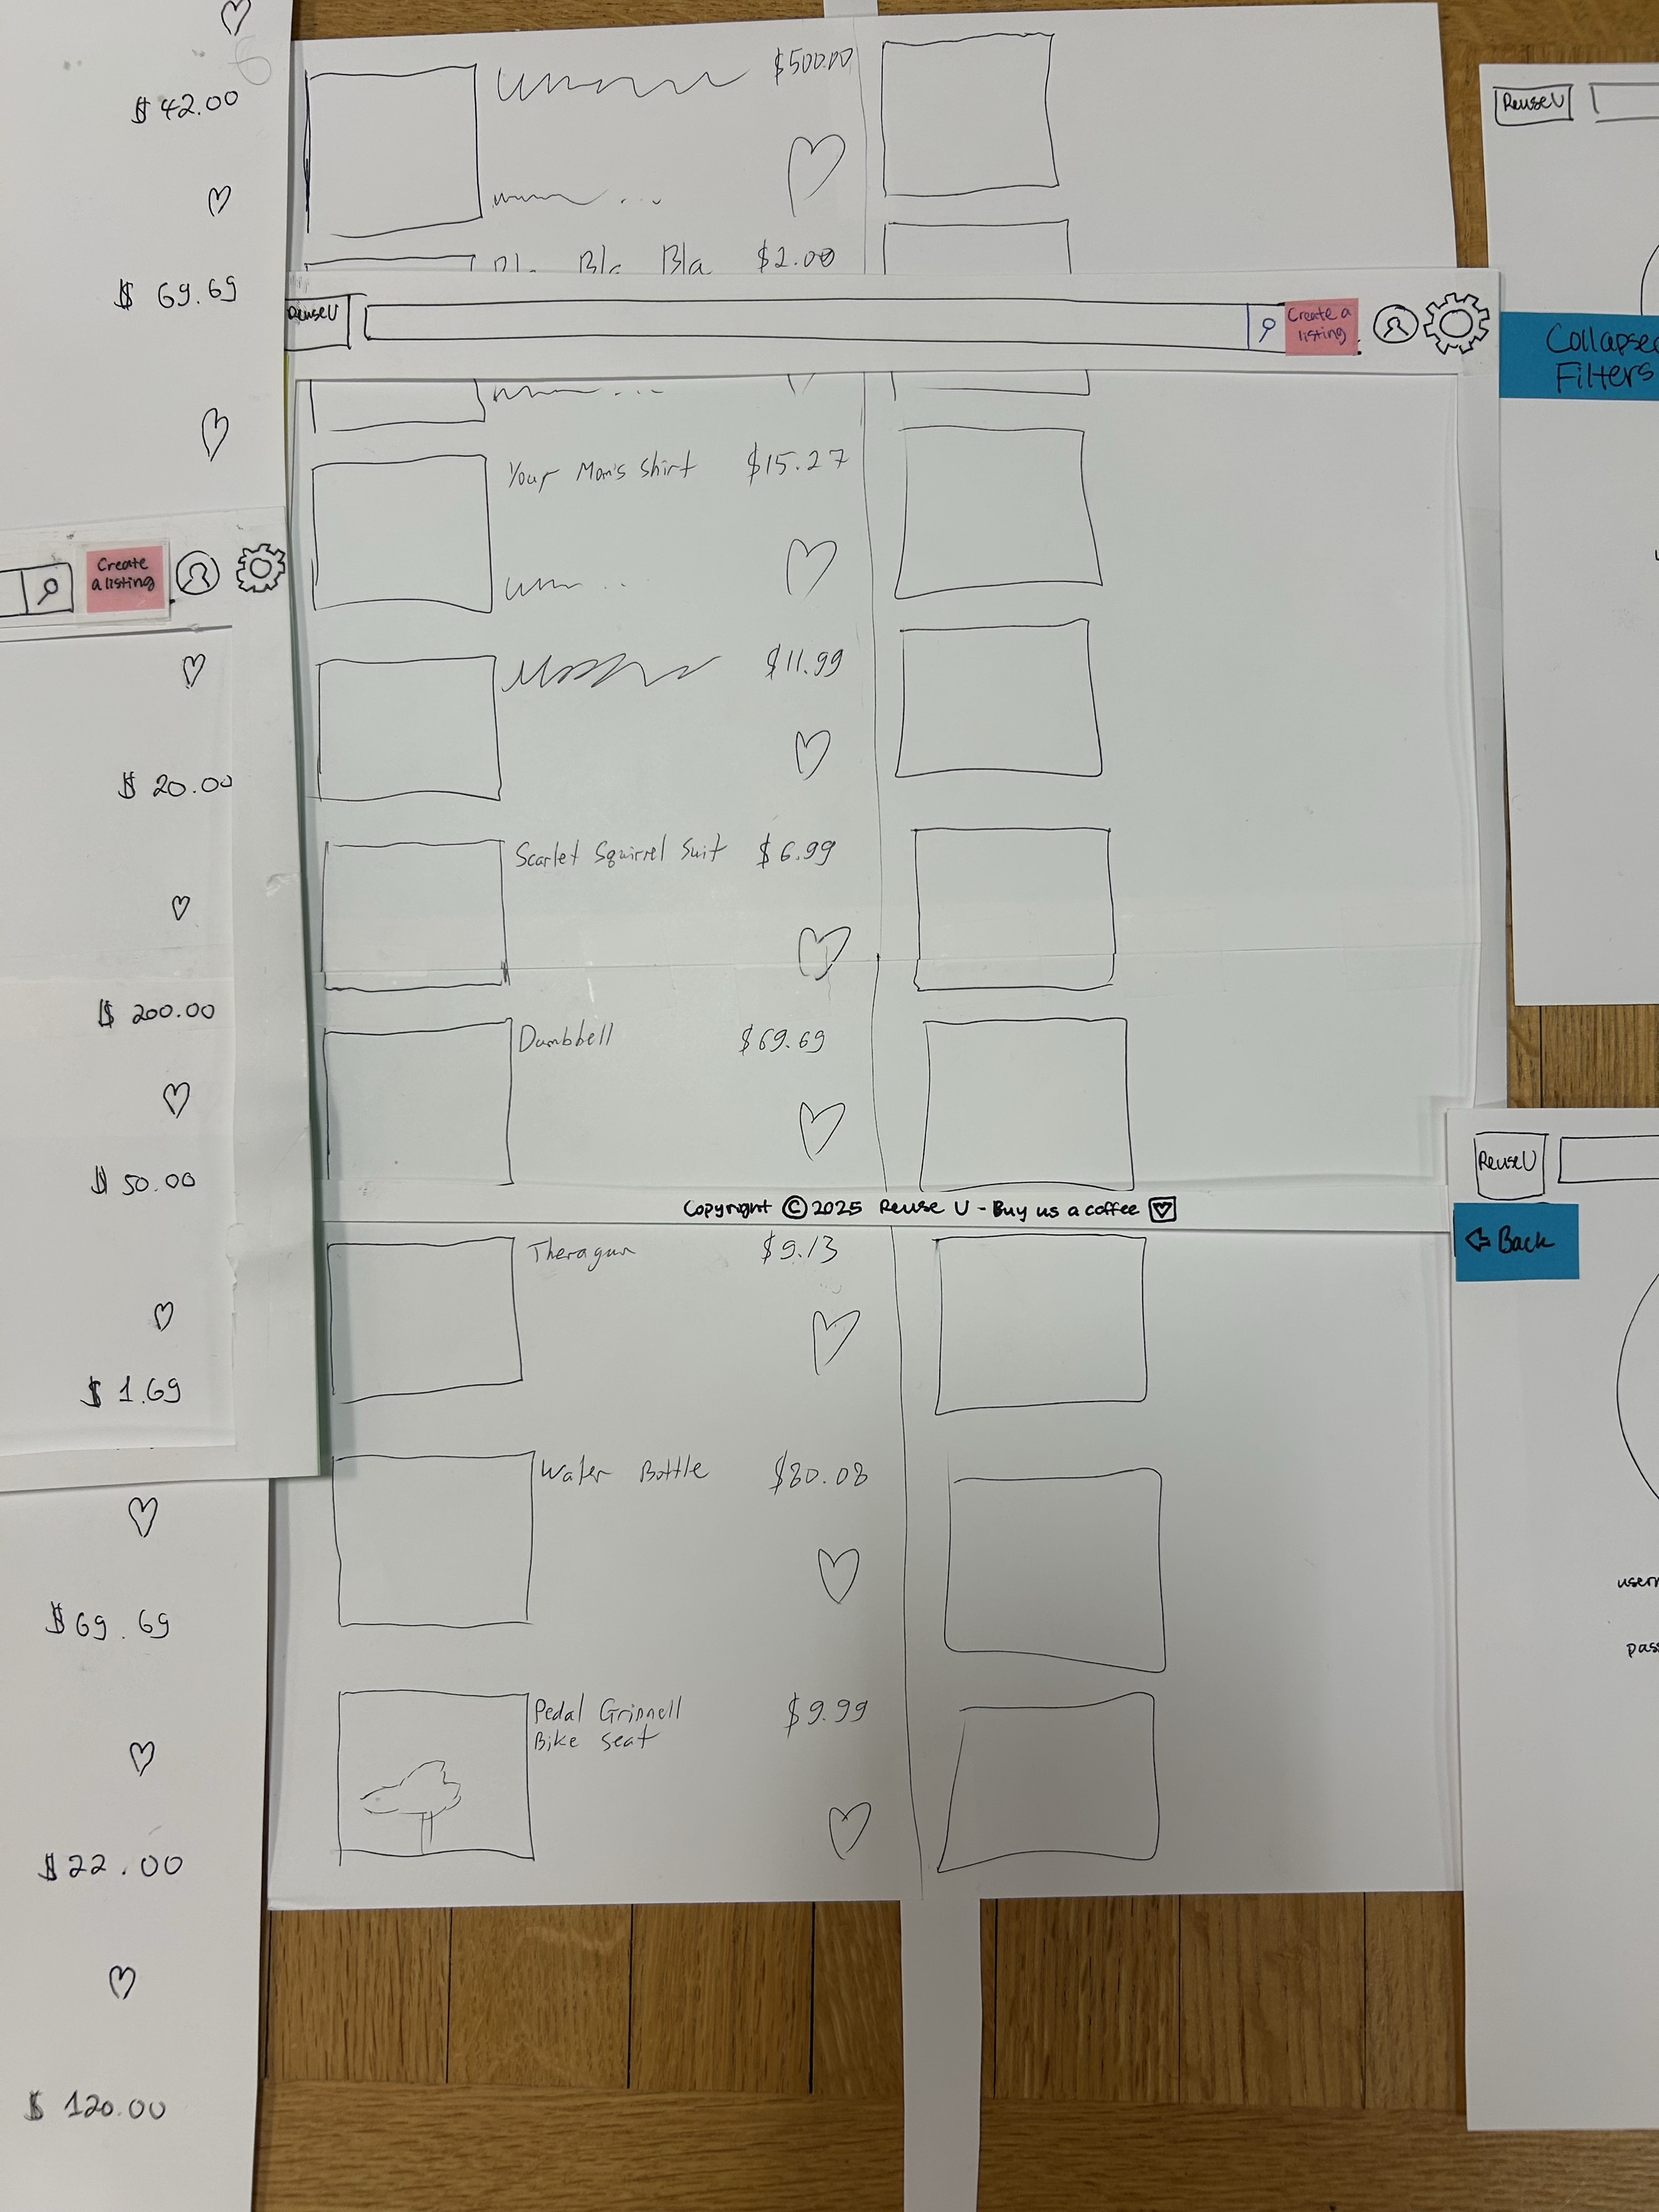 $42.00
$69.69
Create
a listing
$20.00
$200.00
$50.00
$1.69
$69.69
$22.00
$120.00
$500.00
Bla Bla $2.00
ReuseU
Create a
listing
Your Mom's Shirt $15.27
$11.99
Scarlet Squirrel Suit $6.99
Dumbbell $69.69
Copyright © 2025 Reuse U - Buy us a coffee
Theragun $9.13
Water Bottle $80.08
Pedal Grinnell $9.99
Bike seat
ReuseU
Collapsed
Filters
ReuseU
Back